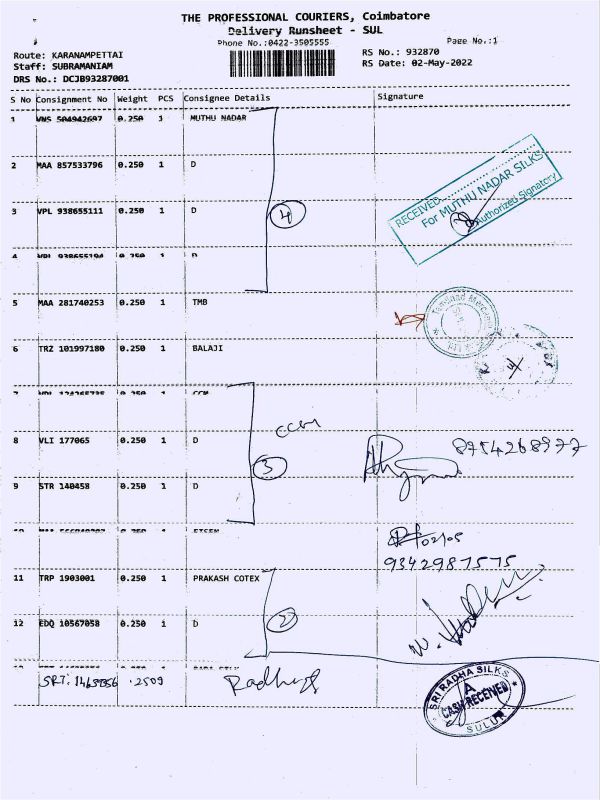 THE PROFESSIONAL COURIERS, Coimbatore
Delivery Runsheet - SUL
Phone No.:0422-3505555
Page No.:1
Route: KARANAMPETTAI
RS No.: 932870
Staff: SUBRAMANIAM
RS Date: 02-May-2022
DRS No.: DCJB93287001
S No Consignment No Weight PCS Consignee Details Signature
1 VNS 504942697 0.250 1 MUTHU NADAR
2 MAA 857533796 0.250 1 D
RECEIVED
For MUTHU NADAR SILKS
Authorized Signatory
3 VPL 938655111 0.250 1 D
4
4 VPL 938655194 0.250 1 D
5 MAA 281740253 0.250 1 TMB
6 TRZ 101997180 0.250 1 BALAJI
7 0.250 1 CCM
CCM
8 VLI 177065 0.250 1 D
8754268977
3
9 STR 140458 0.250 1 D
10 0.250 1
02/05
9342987575
11 TRP 1903001 0.250 1 PRAKASH COTEX
12 EDQ 10567058 0.250 1 D
2
SRI RADHA SILKS
CASH RECEIVED
SULUR